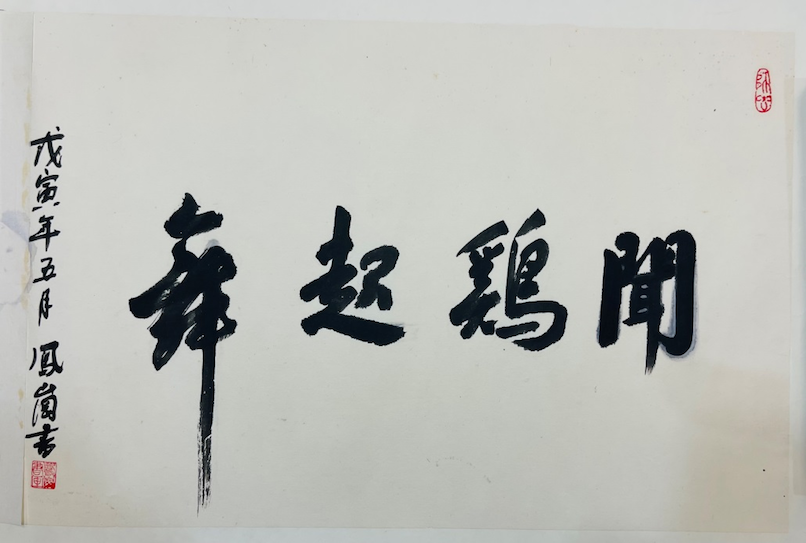 聞鷄起舞
戊寅年五月 鳳崗書